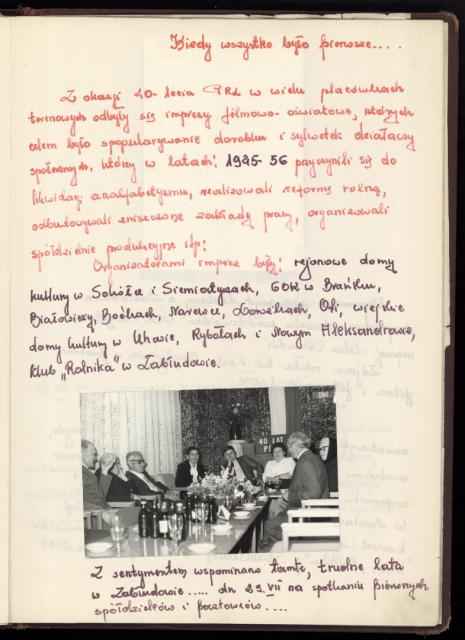 Kiedy wszystko było pierwsze....
Z okazji 40-lecia PRL w wielu placówkach
terenowych odbyły się imprezy filmowo-oświatowe, których
celem było spopularyzowanie dorobku i sylwetek działaczy
społecznych, którzy w latach: 1945-56 przyczynili się do
likwidacji analfabetyzmu, realizowali reformę rolną,
odbudowywali zniszczone zakłady pracy, organizowali
spółdzielnie produkcyjne itp:
Organizatorami imprez były: rejonowe domy
kultury w Sokółce i Siemiatyczach, GOK w Brańsku,
Białowieży, Boćkach, Narewce, Orli, wiejskie
domy kultury w Uhowie, Rybołach i Nowym Aleksandrowie,
klub "Rolnika" w Zabłudowie.
40 LAT
Z sentymentem wspominano tamte, trudne lata
w Zabłudowie..... dn 29.VII na spotkaniu pierwszych
spółdzielców i